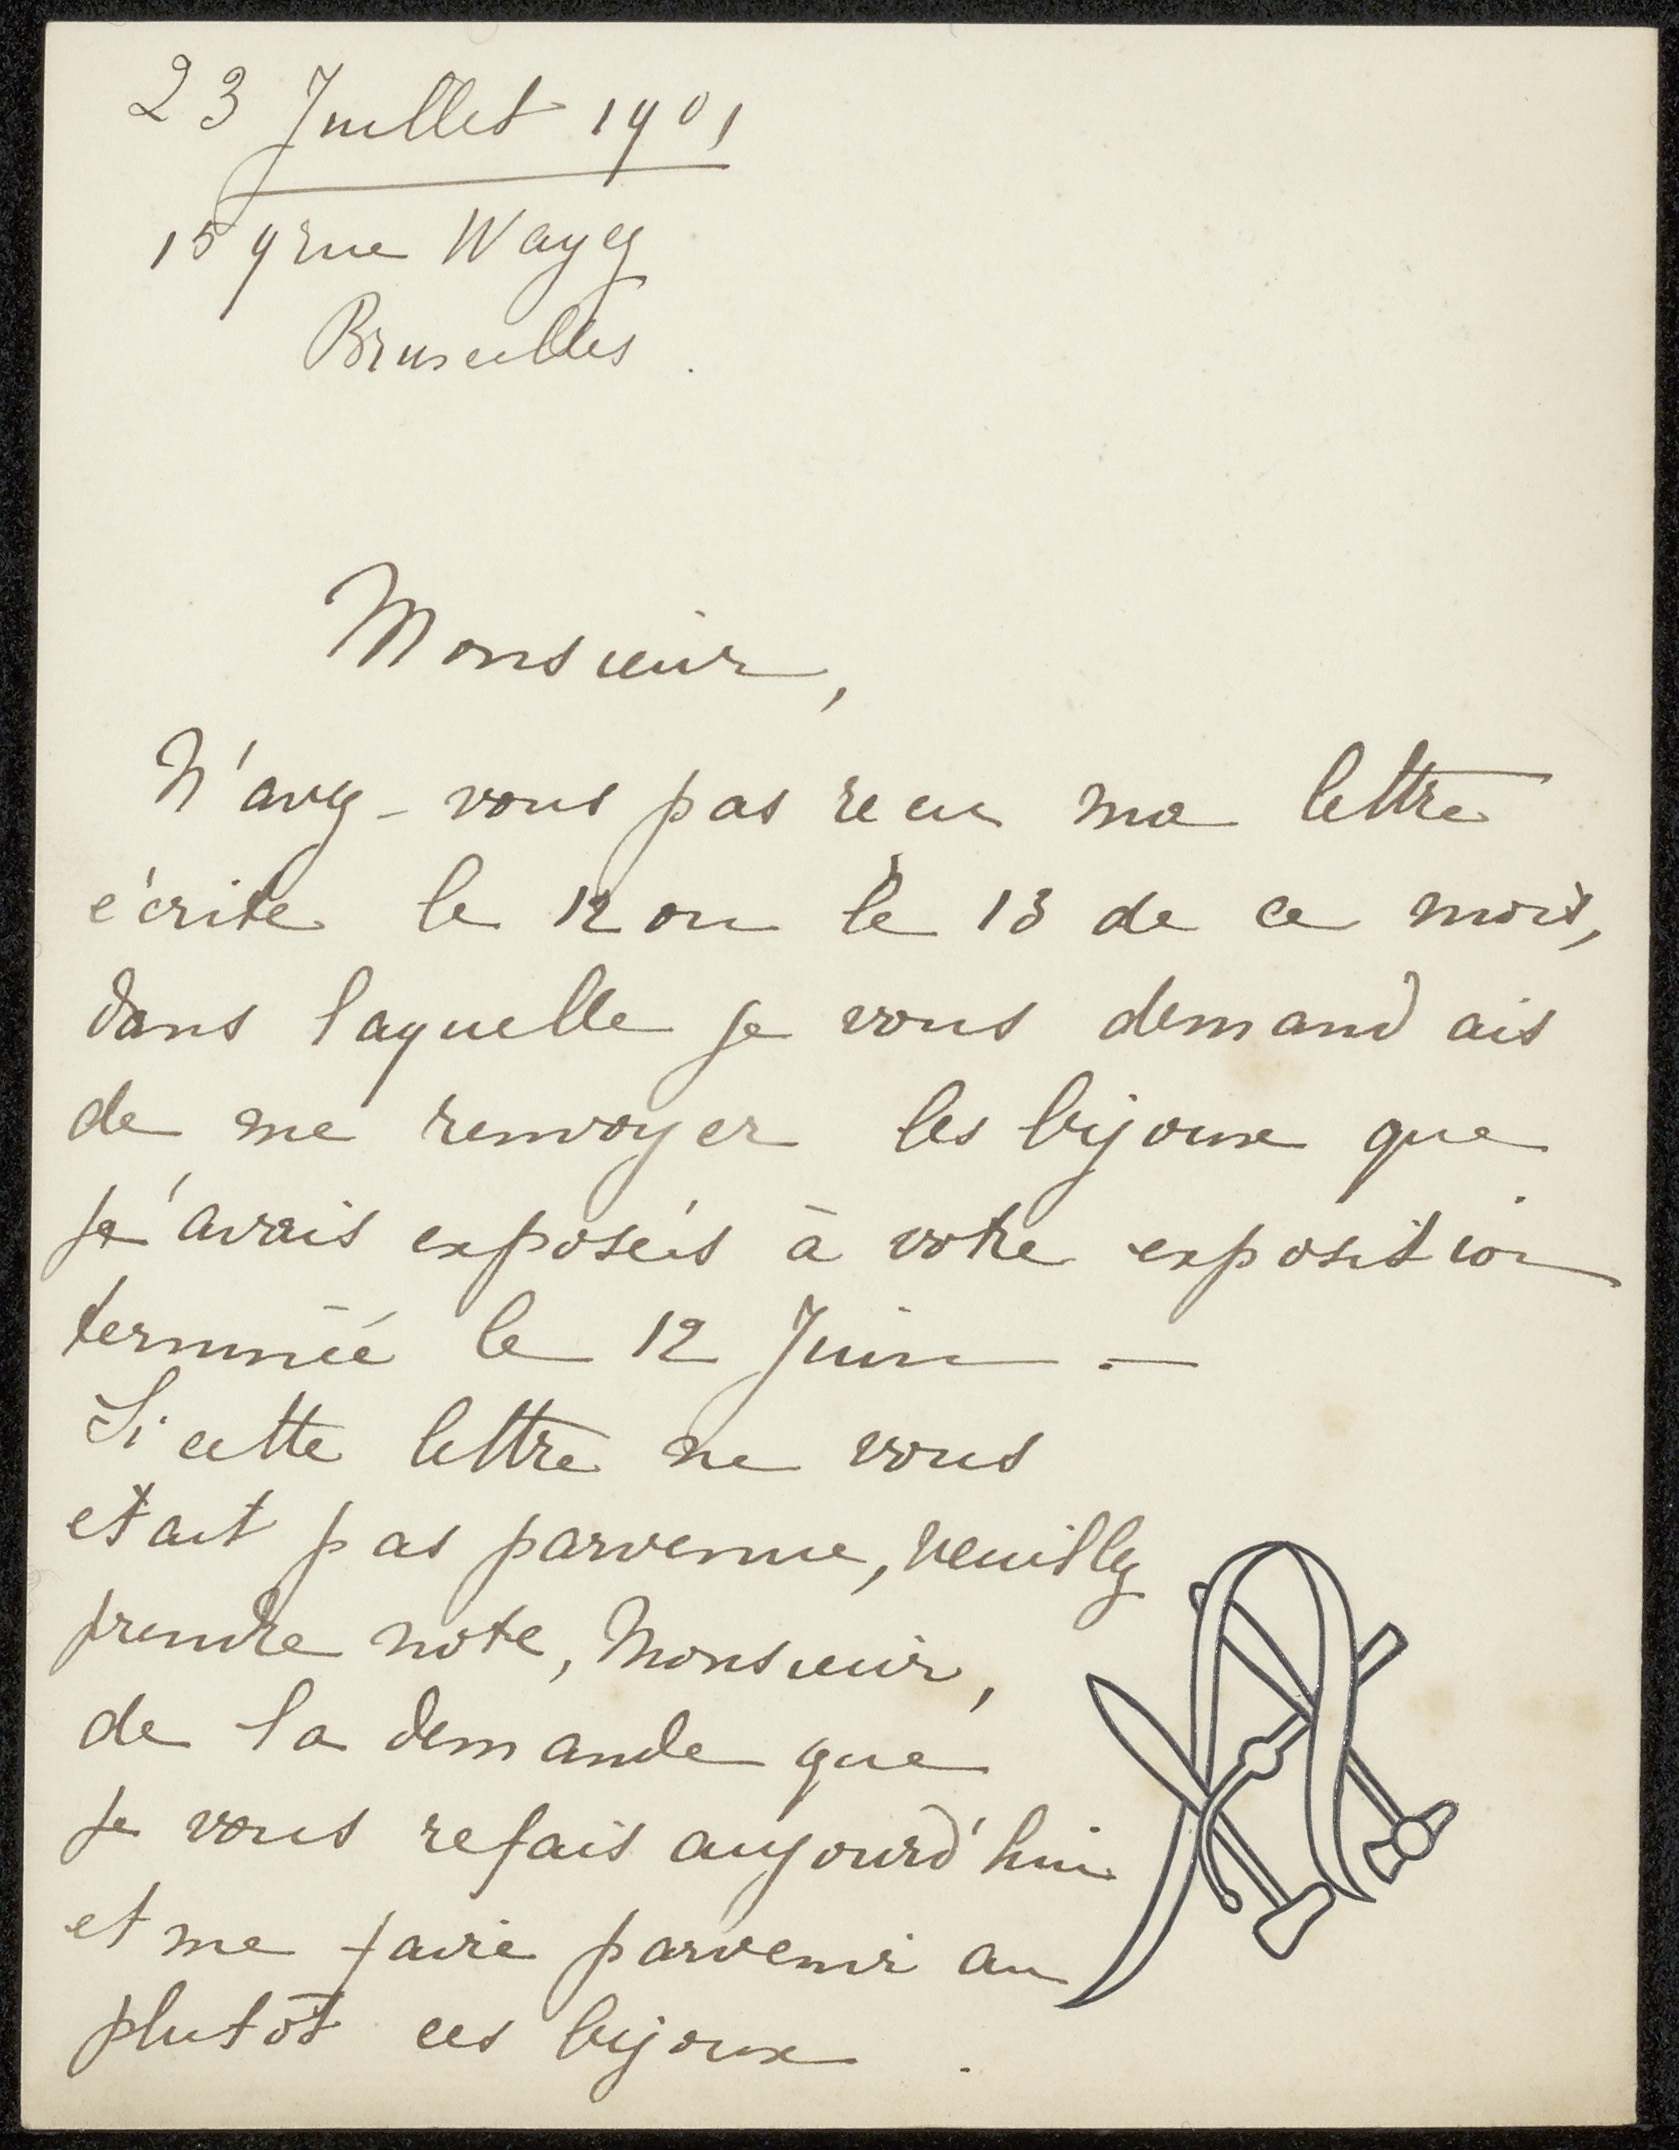 23 Juillet 1901
159 rue Wayez
Bruxelles.
Monsieur,
N'avez-vous pas recu ma lettre
écrite le 12 ou le 13 de ce mois,
dans laquelle je vous demandais
de me renvoyer les bijoux que
je'avais exposés à votre exposition
terminée le 12 Juin. —
Si cette lettre ne vous
etait pas parvenue, veuillez
prendre note, Monsieur,
de la demande que
je vous refais aujourd'hui
et me faire parvenir au
plutôt ces bijoux.